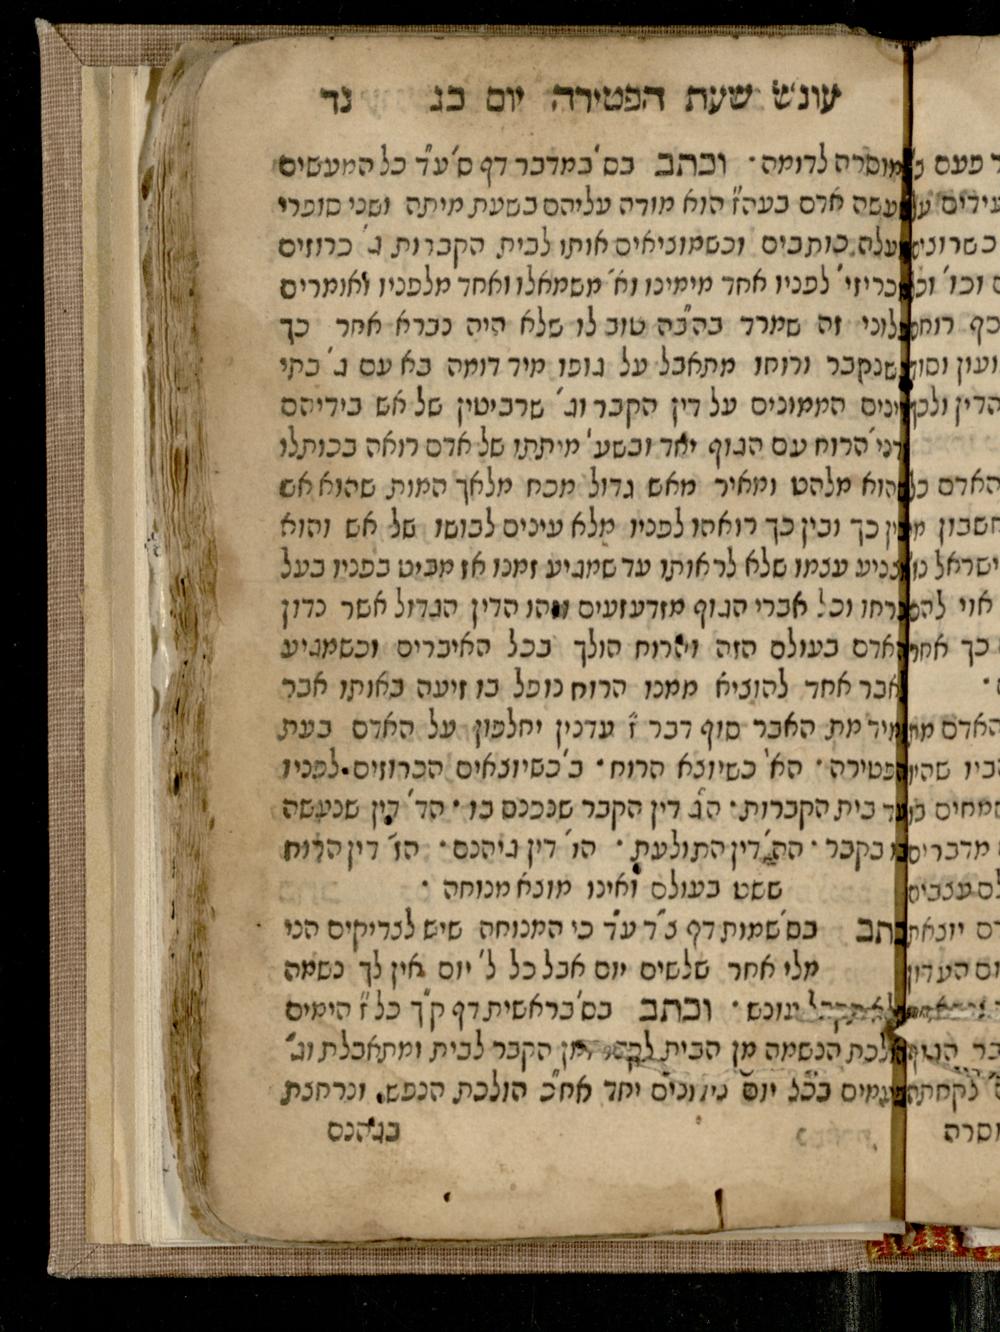 עונש שעת הפטירה יום כג נד
מוסרה לדומה · וכתב בס' במדבר דף ס' ע"ד כל המעשים
עשה אדם בעה"ז הוא מודה עליהם בשעת מיתה ושני סופרי
מעלה כותבים וכשמוציאים אותו לבית הקברות ג' כרוזים
מכריזי' לפניו אחד מימינו וא' משמאלו ואחד מלפניו ואומרים
פלוני זה שמרד בהב"ה טוב לו שלא היה נברא אחר כך
שנקבר ורוחו מתאבל על גופו מיד דומה בא עם ג' בתי
דינים הממונים על דין הקבר וג' שרביטין של אש בידיהם
הרוח עם הגוף יאד ובשע' מיתתו של אדם רואה בכותלו
הוא מלהט ומאיר מאש גדול מכח מלאך המות שהוא אש
בין כך ובין כך רואהו לפניו מלא עינים לבושו של אש והוא
מצניע עצמו שלא לראותו עד שמגיע זמנו אז מביט בפניו בעל
כרחו וכל אברי הגוף מזדעזעים וזהו הדין הגדול אשר נדון
האדם בעולם הזה והרוח הולך בכל האיברים וכשמגיע
אבר אחד להוציא ממנו הרוח נופל בו זיעה באותו אבר
מיד מת האבר סוף דבר ז' עדנין יחלפון על האדם בעת
הפטירה · הא' כשיוצא הרוח · ב' כשיוצאים הכרוזים לפניו
עד בית הקברות · הג' דין הקבר שנכנס בו · הד' דין שנעשה
בו בקבר · הה' דין התולעת · הו' דין גיהנם · הז' דין הרוח
ששט בעולם ואינו מוצא מנוחה ·
כתב בס' שמות דף צ"ד ע"ד כי המנוחה שיש לצדיקים הני
מלי אחר שלשים יום אבל כל ל' יום אין לך נשמה
שלא תקבל עונש · וכתב בס' בראשית דף ק"ך כל ז' הימים
הולכת הנשמה מן הבית לקבר ומן הקבר לבית ומתאבלת וג'
פעמים בכל יום נידונים יחד אח"כ הולכת הנפש ונרחצת
בגהנם